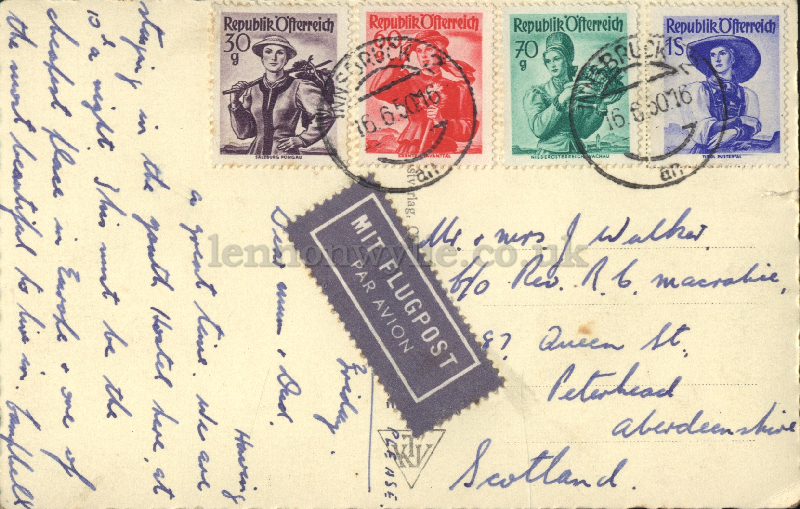 Republik Österreich
30
g
SALZBURG PONGAU
Republik Österreich
KÄRNTEN LAVANTTAL
Republik Österreich
70
g
NIEDERÖSTERREICH WACHAU
Republik Österreich
1S
TIROL PUSTERTAL
INNSBRUCK
16.6.50.16
an
INNSBRUCK
16.6.50.16
an
MIT FLUGPOST
PAR AVION
lennonwylie.co.uk
Friday.
Dear mum & Dad.
Having
a great time. We are
staying in the youth Hostel here, at
10d a night. This must be the
cheapest place in Europe & one of
the most beautiful to live in. Campbell
Mr. & Mrs J Walker.
c/o Rev. R. C. Macrabie,
87 Queen St.
Peterhead
Aberdeenshire
Scotland.
PLEASE.